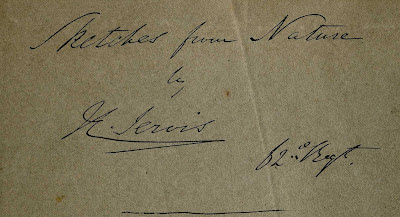 Sketches from Nature
by
H. Jervis
62nd Regt.